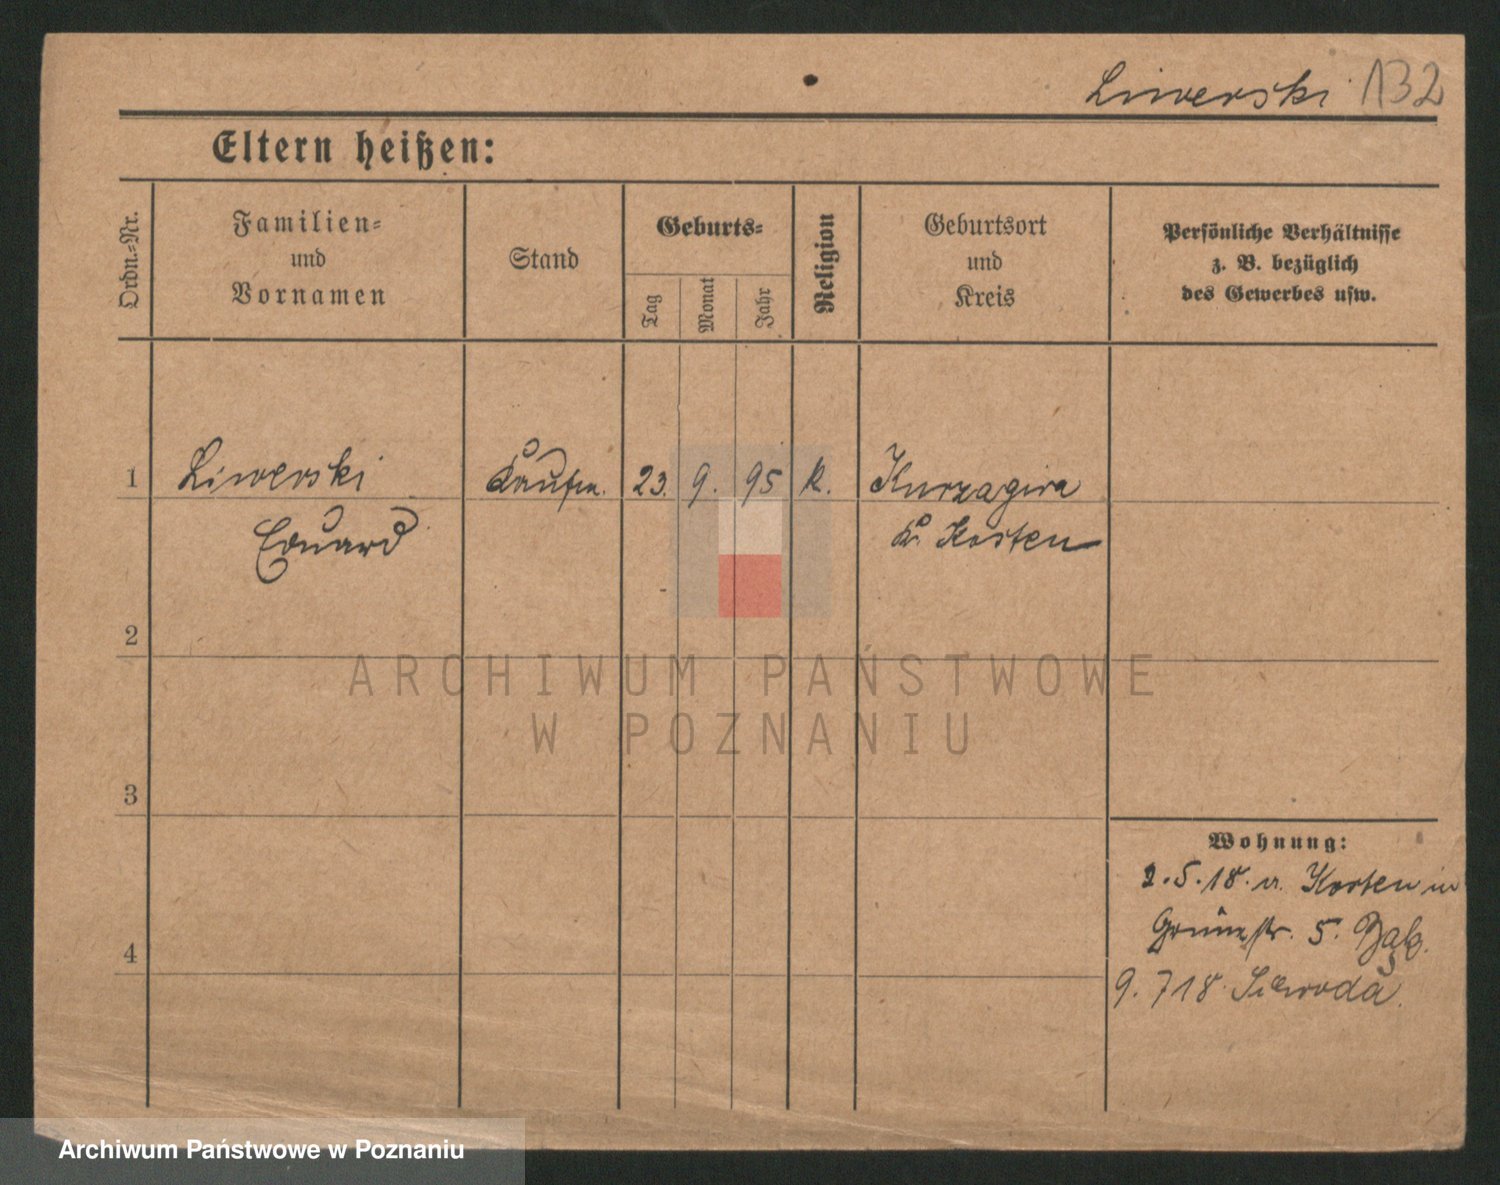 Liwerski 132
Eltern heißen:
Ordn.-Nr.
Familien-
und
Vornamen
Stand
Geburts-
Tag
Monat
Jahr
Religion
Geburtsort
und
Kreis
Persönliche Verhältnisse
z. B. bezüglich
des Gewerbes usw.
1 Liwerski Kaufm. 23. 9. 95 K. Kurzagura
Eduard Kr. Kosten
2
ARCHIWUM PAŃSTWOWE
W POZNANIU
3
Wohnung:
2.5.18. v. Kosten in
Grünestr. 5.
4
9. 718
Archiwum Państwowe w Poznaniu